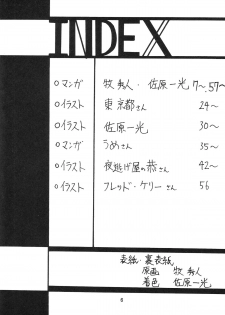 INDEX
○マンガ 牧 秀人・佐原一光 7〜,57〜
○イラスト 東京都さん 24〜
○イラスト 佐原一光 30〜
○マンガ うめさん 35〜
○イラスト 夜逃げ屋の恭さん 42〜
○イラスト フレッド・ケリーさん 56
表紙・裏表紙
原画 牧 秀人
着色 佐原一光
6